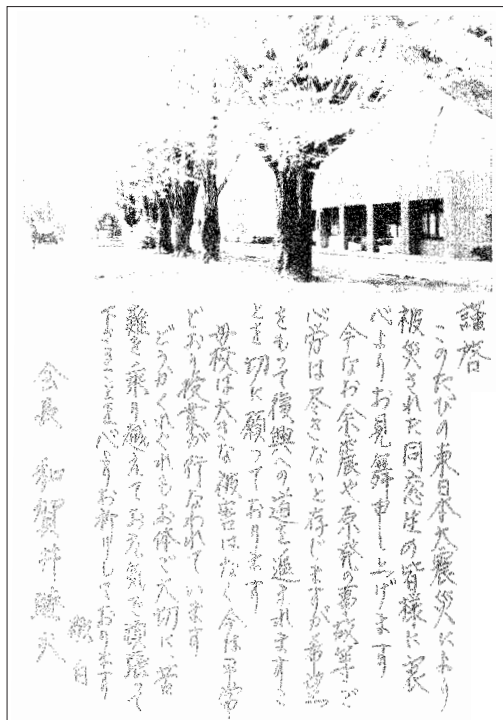 謹啓
このたびの東日本大震災により
被災された同窓生の皆様に衷
心よりお見舞申し上げます
今なお余震や原発の事故等ご
心労は尽きないと存じますが希望
をもって復興への道を進まれますこ
とを切に願っております
母校は大きな被害はなく今は平常
どおり授業が行なわれています
どうかくれぐれもお体ご大切に苦
難を乗り越えてお元気で頑張って
心よりお祈りしております
敬白
会長 和賀井